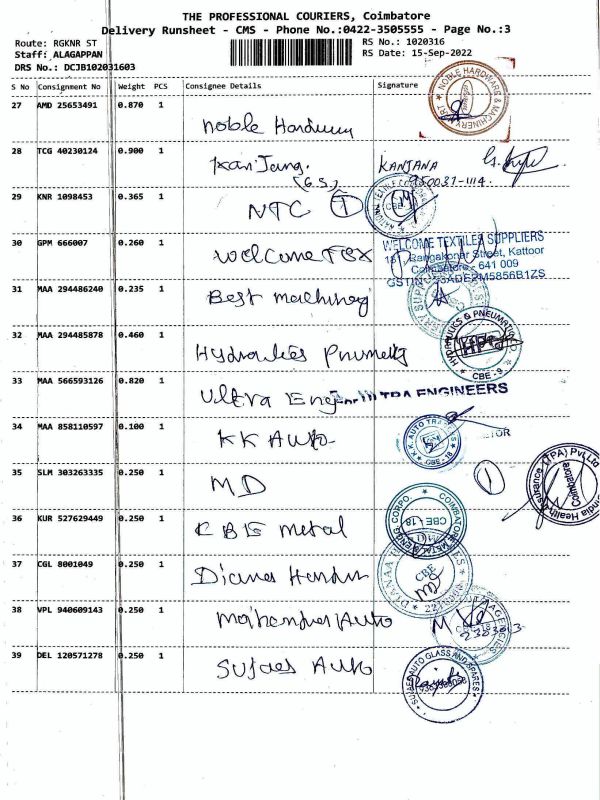 THE PROFESSIONAL COURIERS, Coimbatore
Delivery Runsheet - CMS - Phone No.:0422-3505555 - Page No.:3
Route: RGKNR ST
RS No.: 1020316
Staff: ALAGAPPAN
RS Date: 15-Sep-2022
DRS No.: DCJB102031603
S No Consignment No Weight PCS Consignee Details Signature
27 AMD 25653491 0.870 1
Noble Hardware
NOBLE HARDWARE & MACHINERY MART
28 TCG 40230124 0.900 1
Kanjana.
KANJANA
(G.S)
29 KNR 1098453 0.365 1
NTC 1
30 GPM 666007 0.260 1
Welcome Tex
WELCOME TEXTILES SUPPLIERS
Rangakonar Street, Kattoor
Coimbatore - 641 009
31 MAA 294486240 0.235 1
Best machinery
32 MAA 294485878 0.460 1
HYDRAULICS & PNEUMATICS CO.
CBE - 9
33 MAA 566593126 0.820 1
Ultra Eng
ULTRA ENGINEERS
34 MAA 858110597 0.100 1
KK Auto
CBE - 18
35 SLM 303263335 0.250 1
MD
1
India Health Insurance (TPA) Pvt Ltd
Coimbatore
36 KUR 527629449 0.250 1
CBE metal
COIMBATORE METAL & ENGG CORPO.
CBE - 18
37 CGL 8001049 0.250 1
CBE
38 VPL 940609143 0.250 1
Mahender Auto
39 DEL 120571278 0.250 1
Sujaes Auto
SUJAES AUTO GLASS AND SPARES